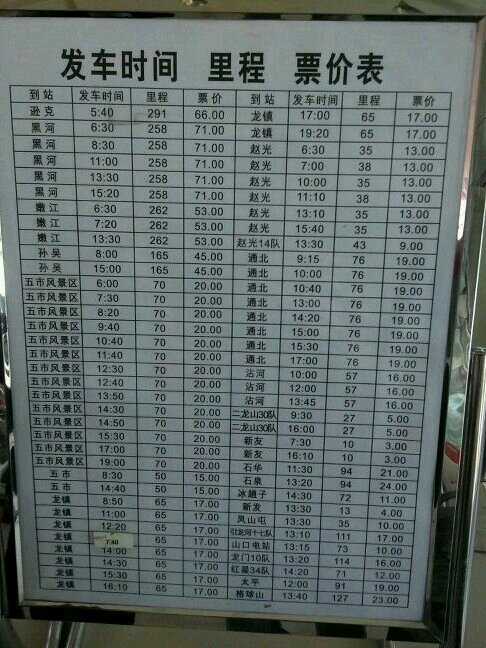 发车时间 里程 票价表
到站 发车时间 里程 票价 到站 发车时间 里程 票价
逊克 5:40 291 66.00 龙镇 17:00 65 17.00
黑河 6:30 258 71.00 龙镇 19:20 65 17.00
黑河 8:30 258 71.00 赵光 6:30 35 13.00
黑河 11:00 258 71.00 赵光 7:00 38 13.00
黑河 13:30 258 71.00 赵光 10:00 35 13.00
黑河 15:20 258 71.00 赵光 11:10 38 13.00
嫩江 6:30 262 53.00 赵光 13:10 35 13.00
嫩江 7:20 262 53.00 赵光 15:40 35 13.00
嫩江 13:30 262 53.00 赵光14队 13:30 43 9.00
孙吴 8:00 165 45.00 通北 9:15 76 19.00
孙吴 15:00 165 45.00 通北 10:00 76 19.00
五市风景区 6:00 70 20.00 通北 10:40 76 19.00
五市风景区 7:30 70 20.00 通北 13:00 76 19.00
五市风景区 8:20 70 20.00 通北 14:20 76 19.00
五市风景区 9:40 70 20.00 通北 15:00 76 19.00
五市风景区 10:40 70 20.00 通北 15:30 76 19.00
五市风景区 11:40 70 20.00 通北 17:00 76 19.00
五市风景区 12:30 70 20.00 沾河 10:00 57 16.00
五市风景区 12:40 70 20.00 沾河 12:00 57 16.00
五市风景区 13:50 70 20.00 沾河 13:45 57 16.00
五市风景区 14:30 70 20.00 二龙山30队 9:30 27 5.00
五市风景区 14:50 70 20.00 二龙山30队 16:00 27 5.00
五市风景区 15:30 70 20.00 新友 7:30 10 3.00
五市风景区 17:00 70 20.00 新友 16:10 10 3.00
五市风景区 19:00 70 20.00 石华 11:30 94 21.00
五市 8:30 50 15.00 石泉 13:20 94 24.00
五市 14:40 50 15.00 冰趟子 14:30 72 11.00
龙镇 8:50 65 17.00 新发 13:30 13 4.00
龙镇 11:00 65 17.00 凤山屯 13:30 35 10.00
龙镇 12:20 65 17.00 引龙河十七队 13:10 111 17.00
龙镇 7:40 65 17.00 山口电站 13:15 73 10.00
龙镇 14:00 65 17.00 龙门10队 13:20 114 16.00
龙镇 14:30 65 17.00 红星34队 14:20 71 12.00
龙镇 15:30 65 17.00 太平 12:00 91 19.00
龙镇 16:10 65 17.00 格球山 13:40 127 23.00